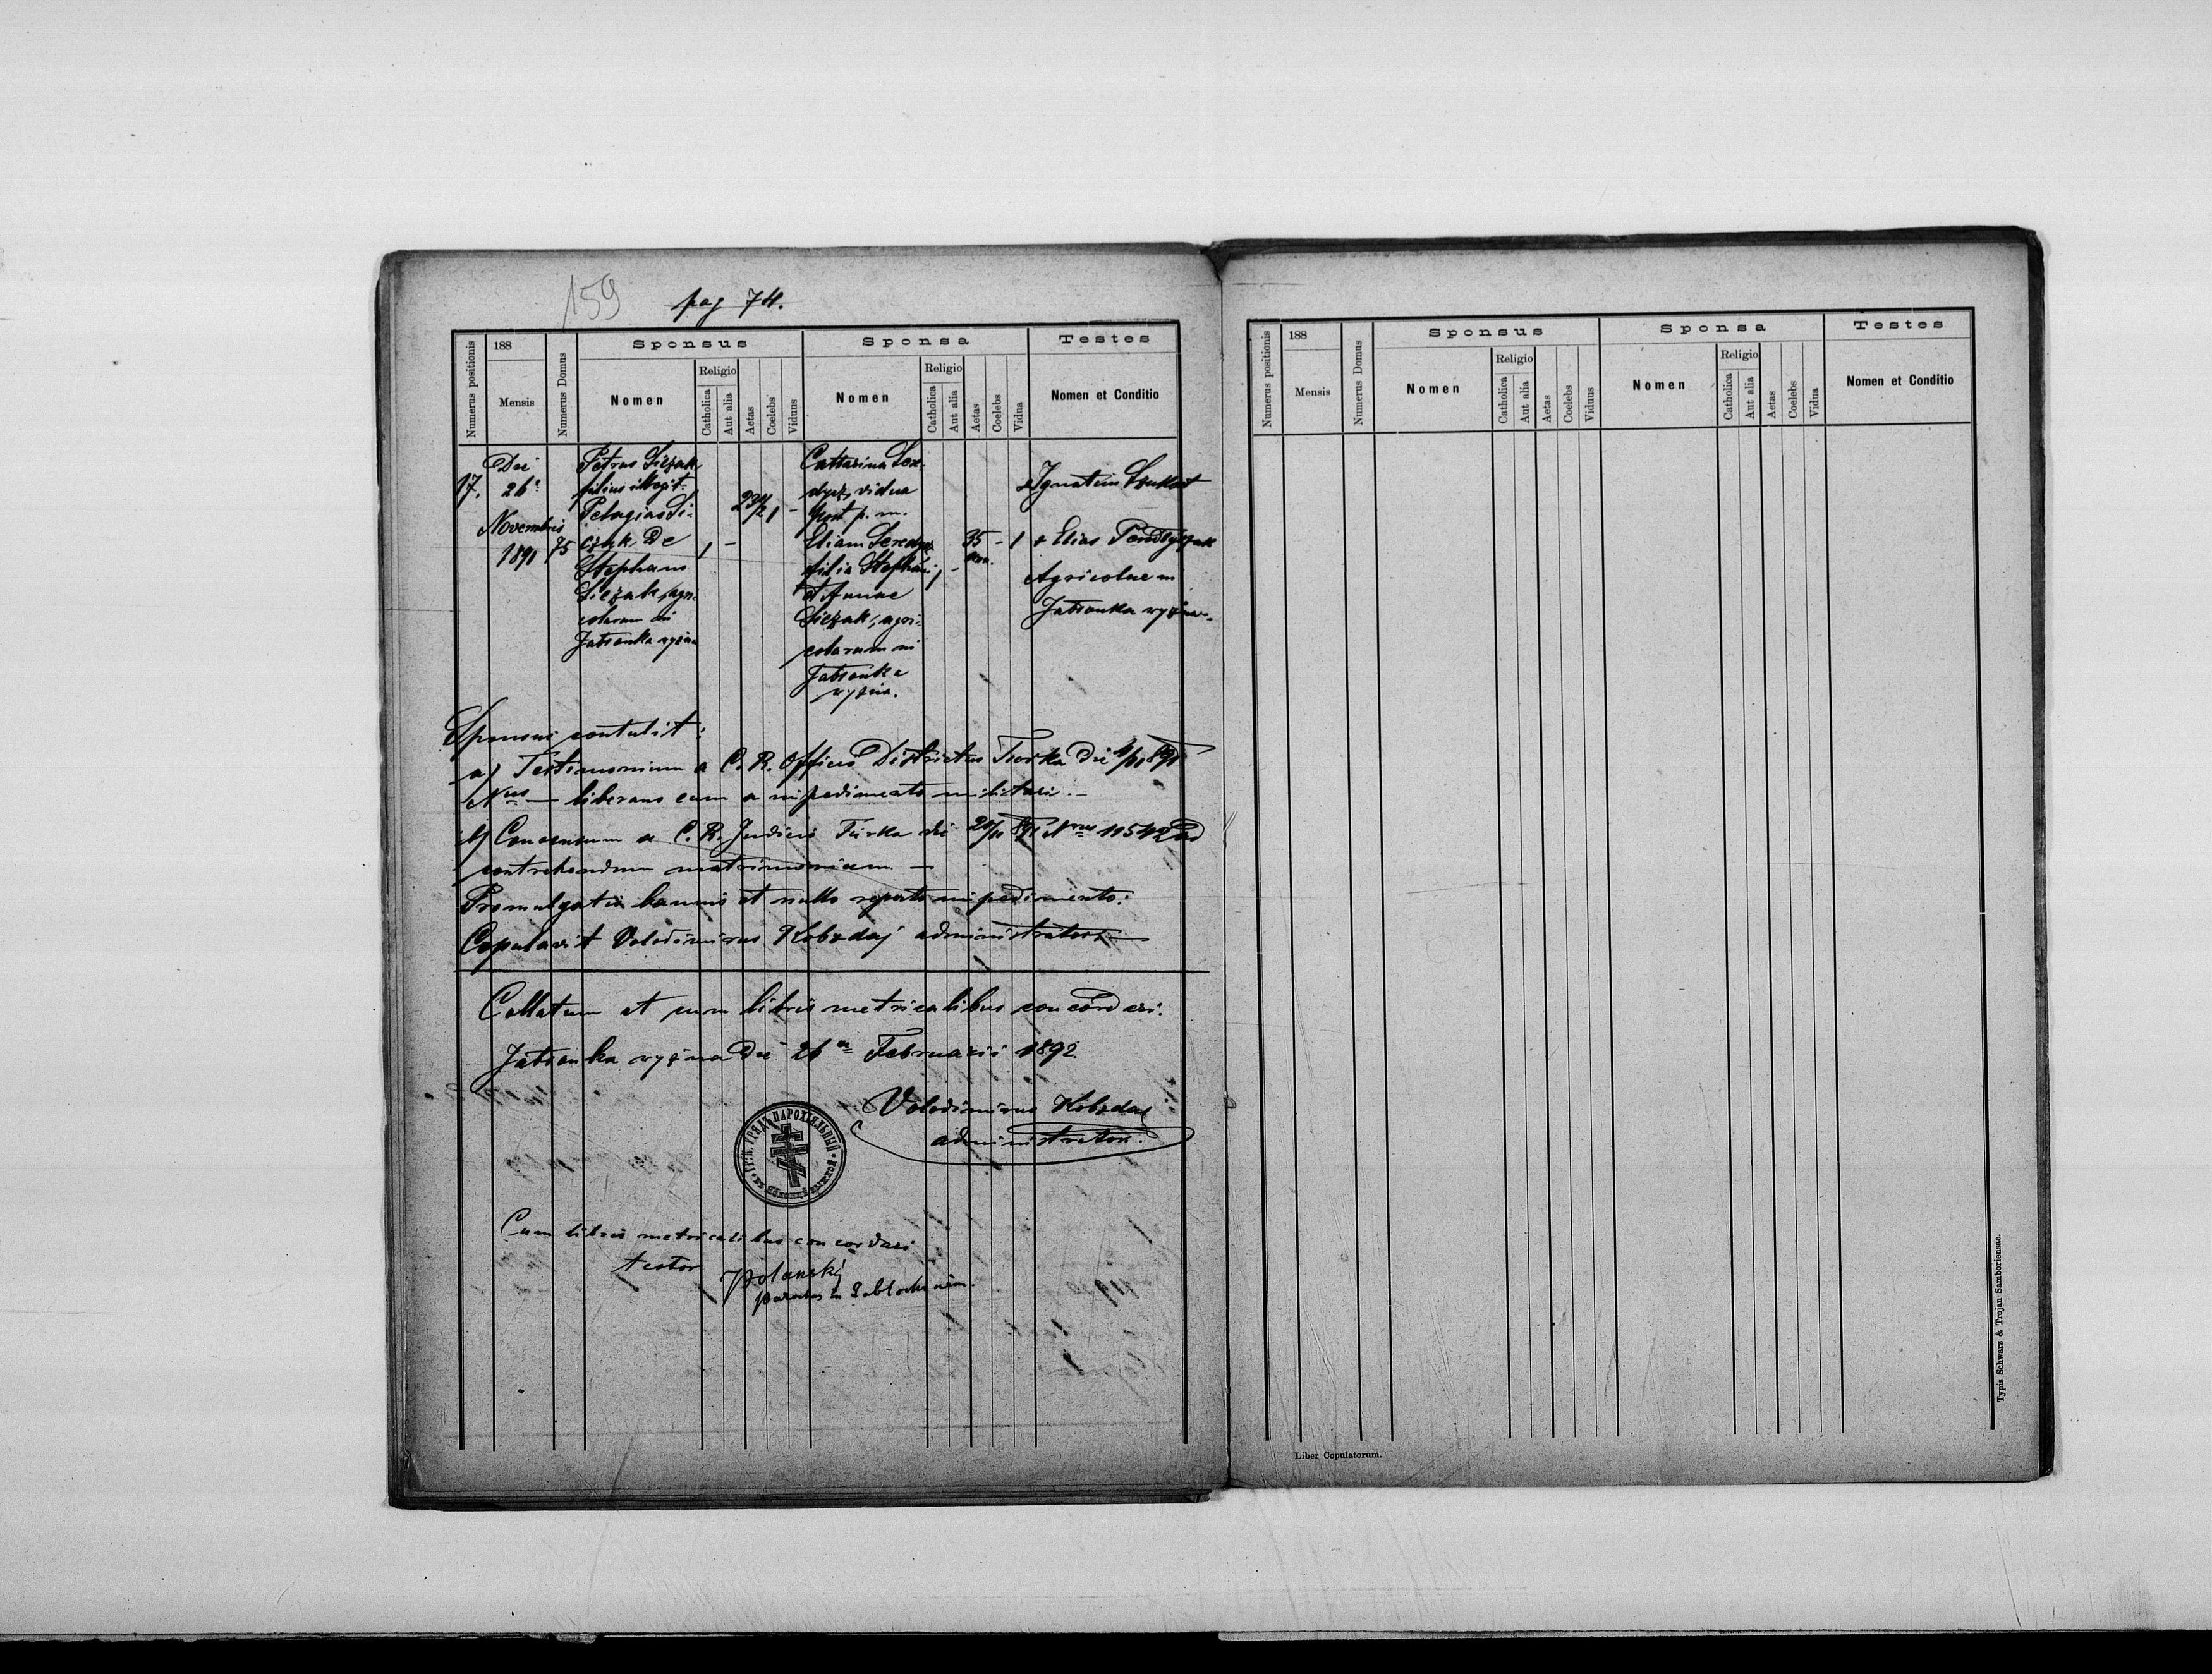 159
pag 74.
Numerus positionis
188
Mensis
Numerus Domus
Sponsus
Nomen
Religio
Catholica
Aut alia
Aetas
Coelebs
Viduus
Sponsa
Nomen
Religio
Catholica
Aut alia
Aetas
Coelebs
Vidua
Testes
Nomen et Conditio
17.
Die
26a
Novembris
1891
75
Petrus Siczak
filius illegit.
Pelagiae Si-
czak de
Stephano
Siczak, agri-
colarum in
Jabłonka wyżna
1
-
23 1/2
1
-
Catharina Sere-
dycz, vidua
post p. m.
Eliam Seredycz
filia Stephani
et Annae
Siczak, agri-
colarum in
Jabłonka
wyżna.
1
-
35
ann.
-
1
Ignatius
+ Elias
Agricolae in
Jabłonka wyżna.
Sponsus contulit:
a) Testimonium a C. R. Officio Districtus Turka die
Nus — liberans eum a impedimento militari. —
b) Concensum a C. R. Judicio Turka die Nrus 11542 ad
contrahendum matrimonium —
Promulgatis bannis et nullo reperto impedimento.
Copulavit Volodimirus Kobrdaj administrator.
Collatum et cum libris metricalibus concordari.
Jabłonka wyżna die 26a Februarii 1892.
Volodimirus Kobrdaj
administrator.
ГР. К. УРЯДЪ ПАРОХІЯЛЬНЫЙ
Cum libris metricalibus concordari
testor
Polanskij
parochus in
Numerus positionis
188
Mensis
Numerus Domus
Sponsus
Nomen
Religio
Catholica
Aut alia
Aetas
Coelebs
Viduus
Sponsa
Nomen
Religio
Catholica
Aut alia
Aetas
Coelebs
Vidua
Testes
Nomen et Conditio
Liber Copulatorum.
Typis Schwarz & Trojan Samboriensae.